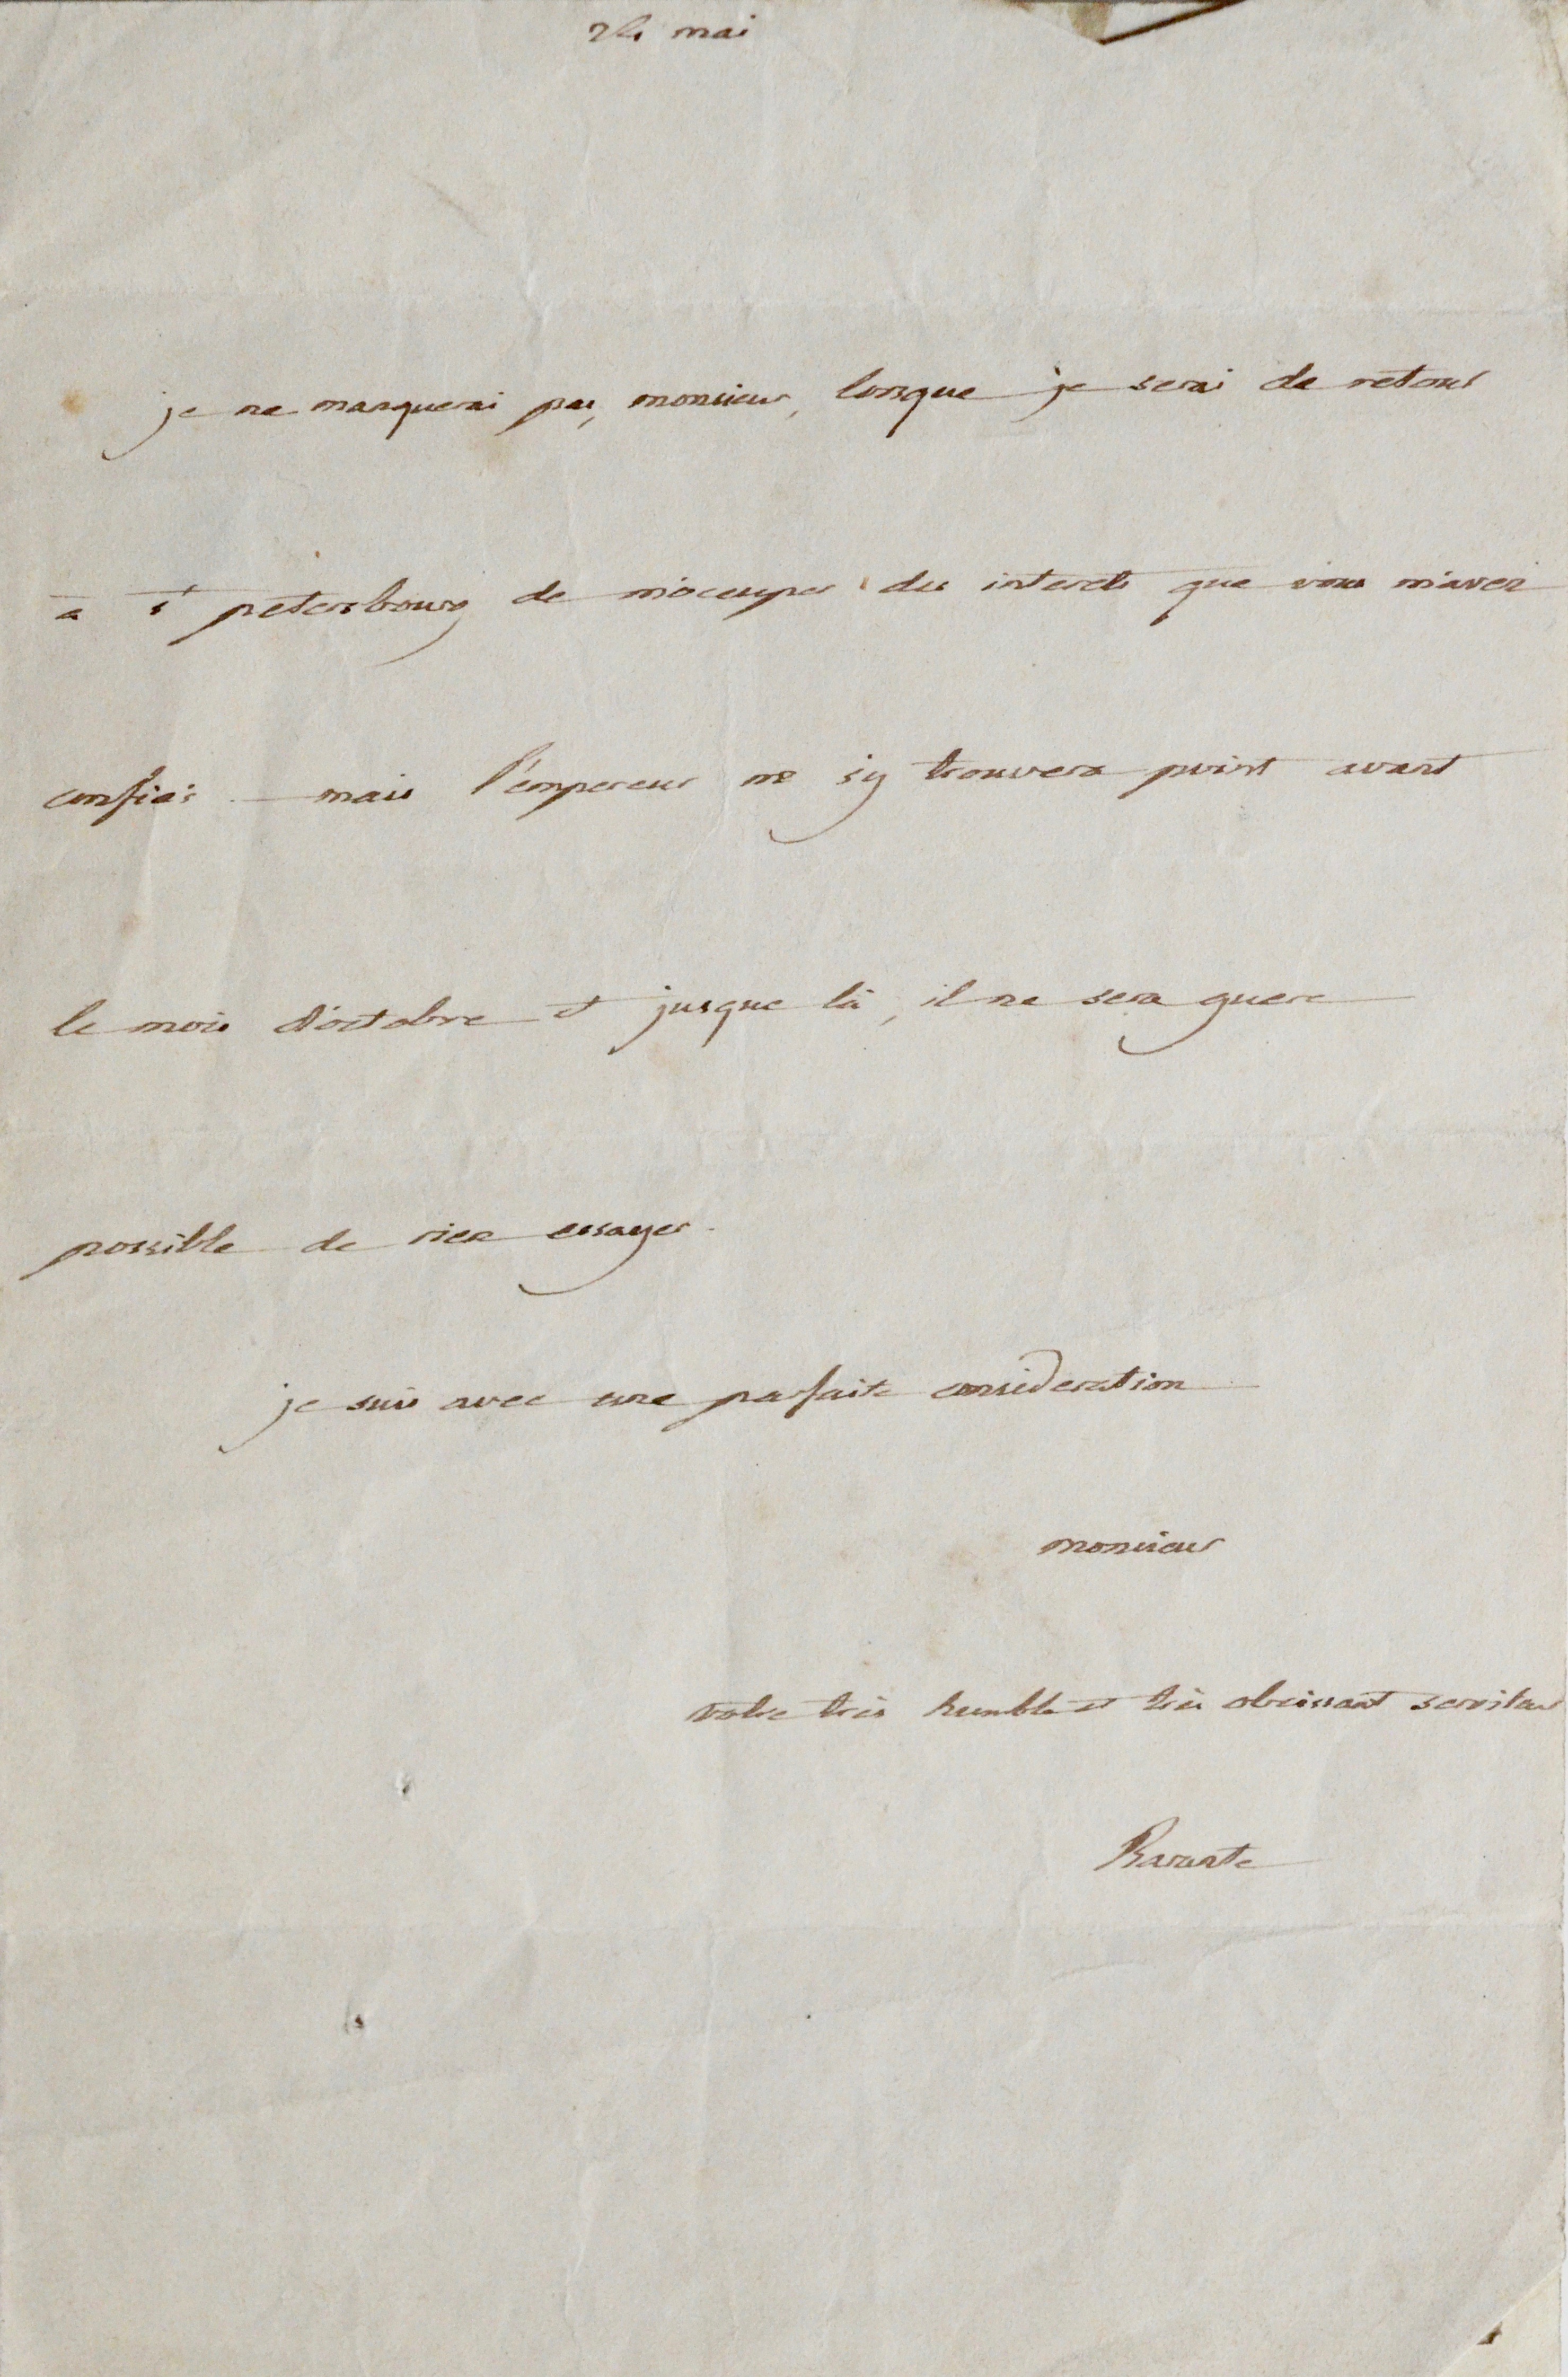 24 mai
je ne manquerai pas, monsieur, lorsque je serai de retour
a st petersbourg de m'occuper des interets que vous m'avez
confiés. mais l'empereur ne s'y trouvera point avant
le mois d'octobre et jusque là, il ne sera guere
possible de rien essayer.
je suis avec une parfaite consideration
monsieur
votre très humble et très obeissant serviteur
Barante